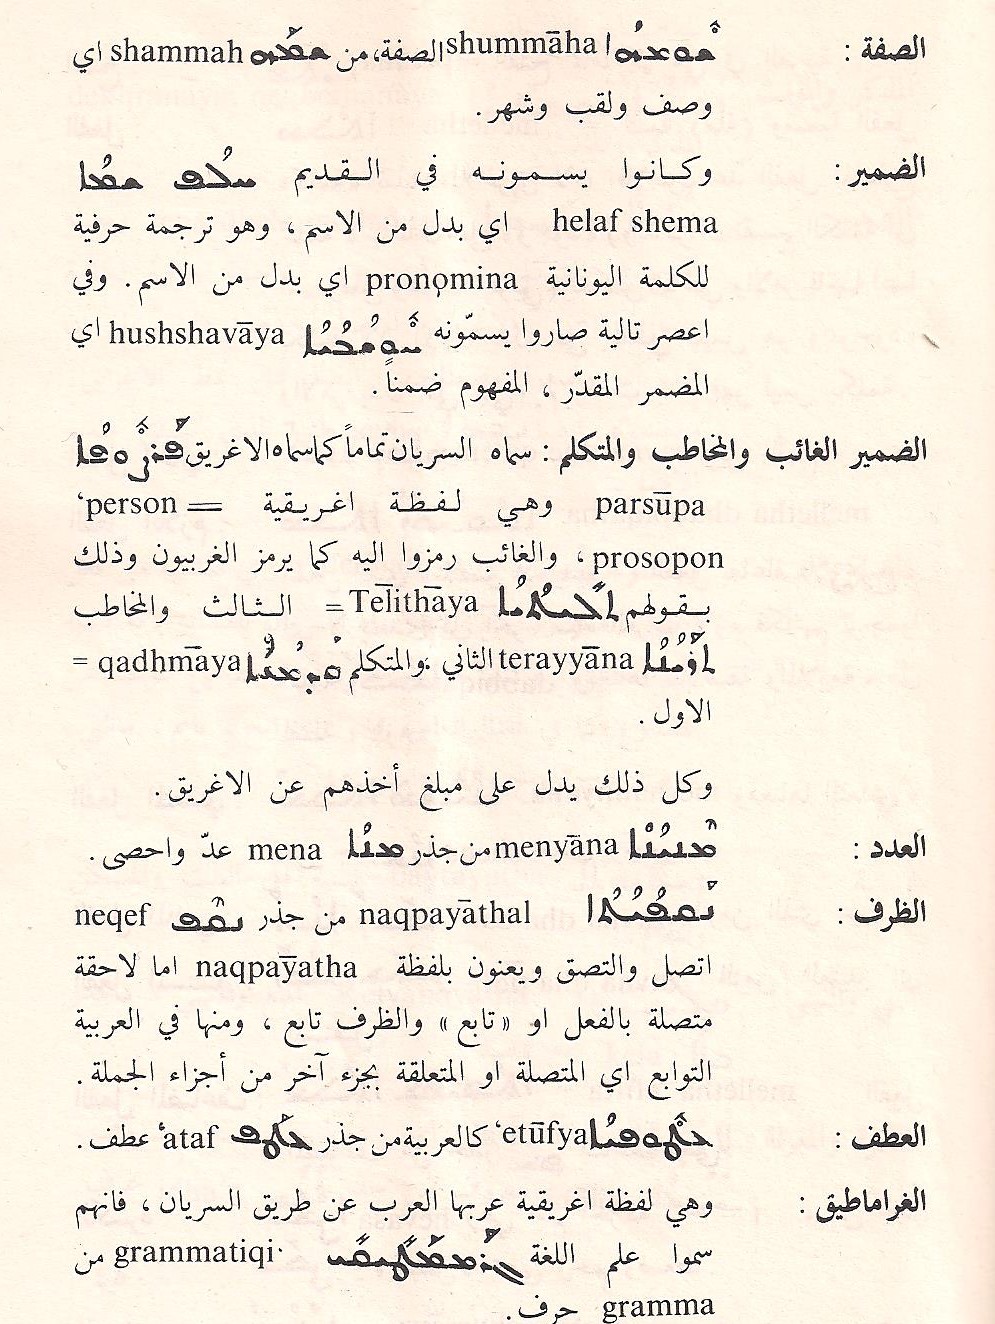 الصفة : ܫܘܡܗܐ shummāha الصفة، من ܫܡܗ shammah اي
وصف ولقب وشهر.
الضمير : وكانوا يسمونه في القديم ܚܠܦ ܫܡܐ
helaf shema اي بدل من الاسم ، وهو ترجمة حرفية
للكلمة اليونانية pronomina اي بدل من الاسم . وفي
اعصر تالية صاروا يسمّونه ܚܘܫܒܝܐ hushshavāya اي
المضمر المقدّر ، المفهوم ضمناً .
الضمير الغائب والمخاطب والمتكلم : سماه السريان تماماً كما سماه الاغريق ܦܪܨܘܦܐ
parsūpa وهي لفظة اغريقية = person‘
prosopon ، والغائب رمزوا اليه كما يرمز الغربيون وذلك
بقولهم ܬܠܝܬܝܐ Telīthāya = الثالث والمخاطب
ܬܪܝܢܐ terayyāna الثاني ؛ والمتكلم ܩܕܡܝܐ qadhmāya =
الاول .
وكل ذلك يدل على مبلغ أخذهم عن الاغريق .
العدد : ܡܢܝܢܐ menyāna من جذر ܡܢܐ mena عدّ واحصى .
الظرف : ܢܩܦܝܬܐ naqpayāthal من جذر ܢܩܦ neqef
اتصل والتصق ويعنون بلفظة naqpaȳatha اما لاحقة
متصلة بالفعل او « تابع » والظرف تابع ، ومنها في العربية
التوابع اي المتصلة او المتعلقة بجزء آخر من أجزاء الجملة .
العطف : ܥܛܘܦܝܐ ‘etūfya كالعربية من جذر ܥܛܦ ‘ataf عطف .
الغراماطيق : وهي لفظة اغريقية عربها العرب عن طريق السريان ، فانهم
سموا علم اللغة ܓܪܡܛܝܩܝ grammatiqi من
gramma حرف .